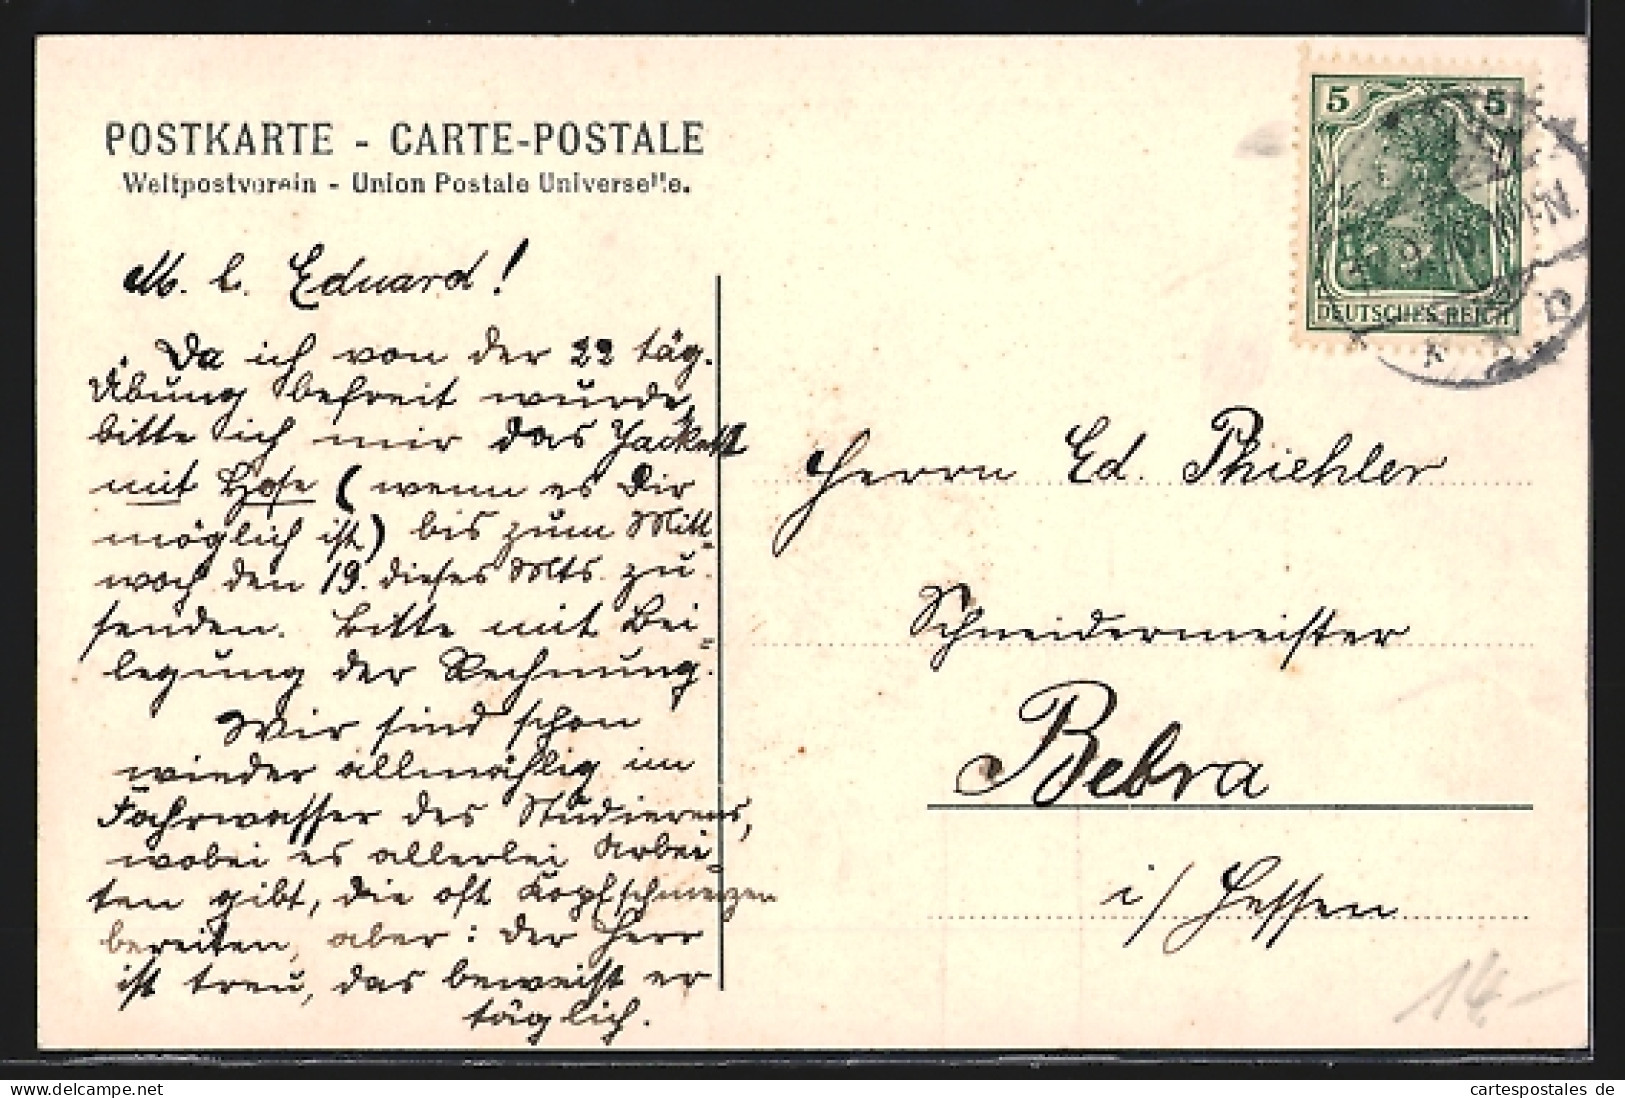 POSTKARTE - CARTE-POSTALE
Weltpostverein - Union Postale Universelle.
M. l. Eduard!
Da ich von der 22 täg.
Übung befreit wurde,
bitte ich mir das Jackett
mit Hose (wenn es Dir
möglich ist) bis zum Mitt=
woch den 19. dieses Mts. zu
senden. Bitte mit Bei=
legung der Rechnung.
Wir sind schon
wieder allmählig im
Fahrwasser des Studierens,
wobei es allerlei Arbei=
ten gibt, die oft Kopfschmerzen
bereiten, aber: der Herr
ist treu, das beweist er
täglich.
5 5
DEUTSCHES REICH
Herrn Ed. Phiehler
Schneidermeister
Bebra
i/ Hessen
14.-
hpm24.de
cartespostales de